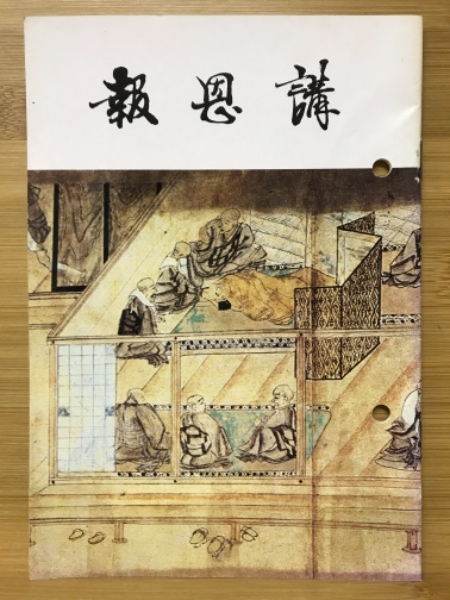 報恩講